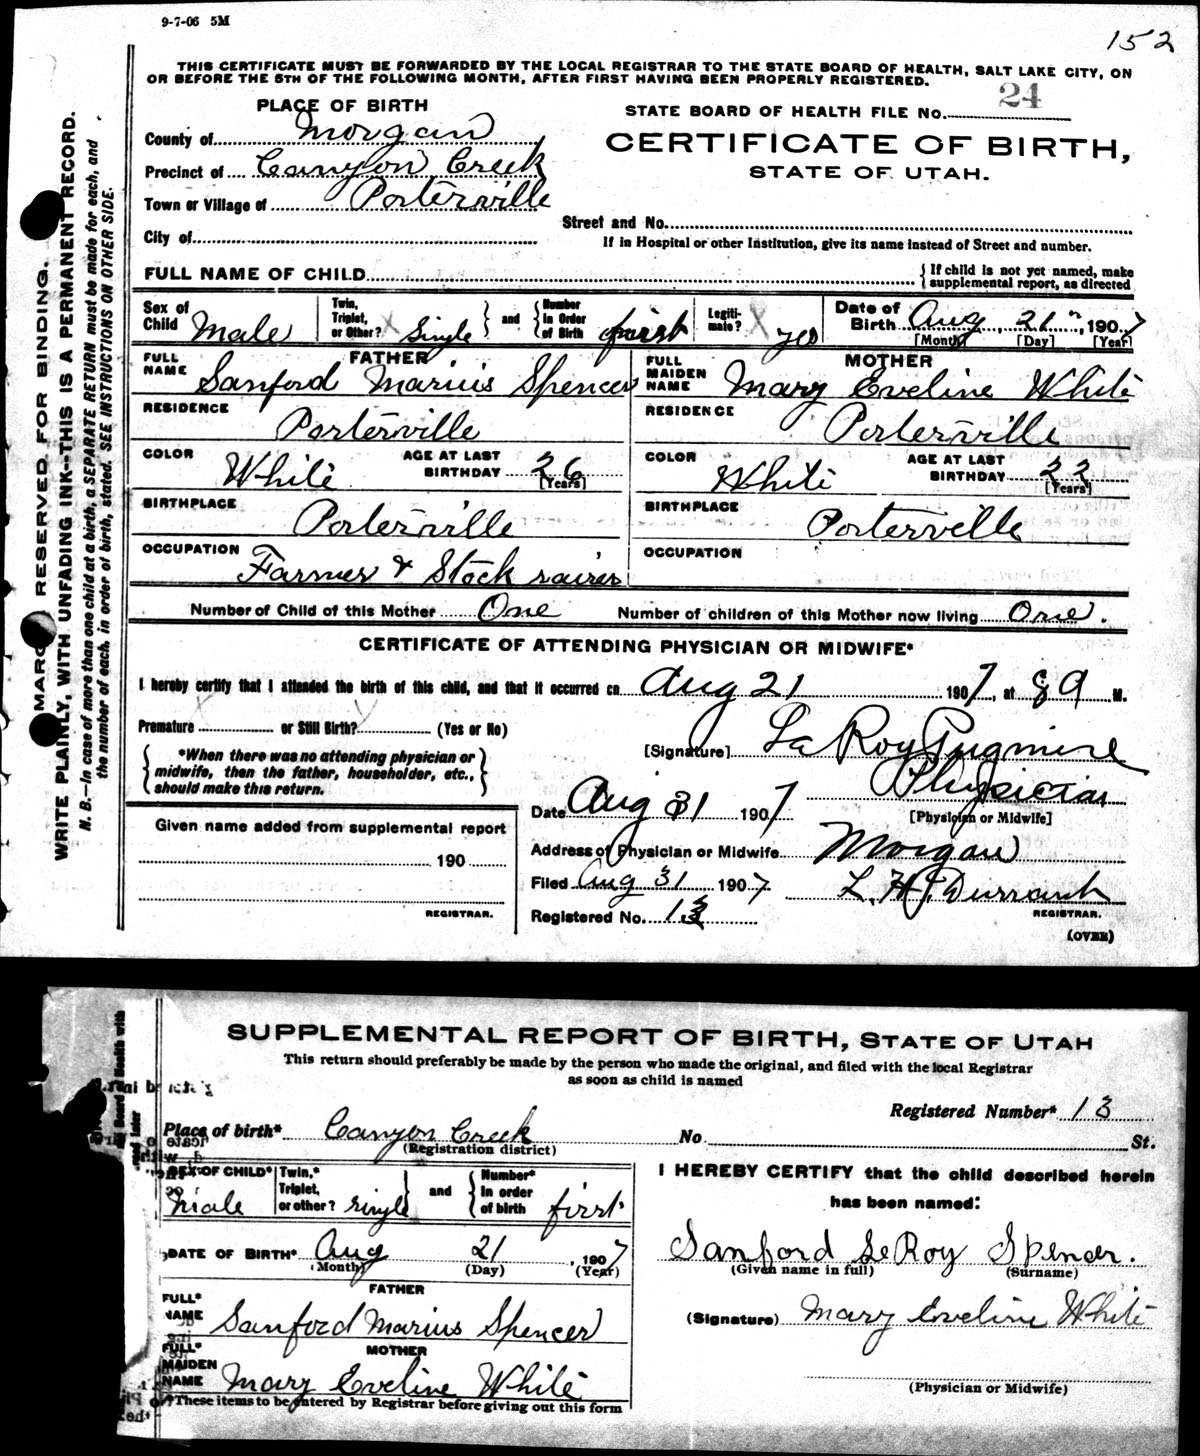 9-7-06 5M
152
THIS CERTIFICATE MUST BE FORWARDED BY THE LOCAL REGISTRAR TO THE STATE BOARD OF HEALTH, SALT LAKE CITY, ON
OR BEFORE THE 5TH OF THE FOLLOWING MONTH, AFTER FIRST HAVING BEEN PROPERLY REGISTERED.
MARGIN RESERVED FOR BINDING.
WRITE PLAINLY, WITH UNFADING INK--THIS IS A PERMANENT RECORD.
N. B.--In case of more than one child at a birth, a SEPARATE RETURN must be made for each, and
the number of each, in order of birth, stated. SEE INSTRUCTIONS ON OTHER SIDE.
PLACE OF BIRTH
County of Morgan
Precinct of Canyon Creek
Town or Village of Porterville
City of
STATE BOARD OF HEALTH FILE No. 24
CERTIFICATE OF BIRTH,
STATE OF UTAH.
Street and No.
If in Hospital or other Institution, give its name instead of Street and number.
FULL NAME OF CHILD
If child is not yet named, make
supplemental report, as directed
Sex of Child Male
Twin, Triplet, or Other? Single
and
Number in Order of Birth first
Legitimate? yes
Date of Birth Aug 21", 1907
[Month] [Day] [Year]
FATHER
FULL NAME Sanford Marius Spencer
MOTHER
FULL MAIDEN NAME Mary Eveline White
RESIDENCE Porterville
RESIDENCE Porterville
COLOR White AGE AT LAST BIRTHDAY 26 [Years]
COLOR White AGE AT LAST BIRTHDAY 22 [Years]
BIRTHPLACE Porterville
BIRTHPLACE Porterville
OCCUPATION Farmer & Stock raiser
OCCUPATION
Number of Child of this Mother One Number of children of this Mother now living One.
CERTIFICATE OF ATTENDING PHYSICIAN OR MIDWIFE*
I hereby certify that I attended the birth of this child, and that it occurred on Aug 21 1907, at 8 a M.
Premature or Still Birth? (Yes or No)
*When there was no attending physician or
midwife, then the father, householder, etc.,
should make this return.
[Signature] La Roy Pugmire
Physician
[Physician or Midwife]
Date Aug 31 1907
Given name added from supplemental report
190
REGISTRAR.
Address of Physician or Midwife Morgan
Filed Aug 31 1907 L. H. J. Durrant
Registered No. 13
REGISTRAR.
(OVER)
SUPPLEMENTAL REPORT OF BIRTH, STATE OF UTAH
This return should preferably be made by the person who made the original, and filed with the local Registrar
as soon as child is named
Registered Number* 13
Place of birth* Canyon Creek No. St.
(Registration district)
SEX OF CHILD* Male
Twin,* Triplet, or other? single
and
Number* in order of birth first
DATE OF BIRTH* Aug 21, 1907
(Month) (Day) (Year)
FATHER
FULL* NAME Sanford Marius Spencer
MOTHER
FULL* MAIDEN NAME Mary Eveline White
*These items to be entered by Registrar before giving out this form
I HEREBY CERTIFY that the child described herein
has been named:
Sanford LeRoy Spencer.
(Given name in full) (Surname)
(Signature) Mary Eveline White
(Physician or Midwife)